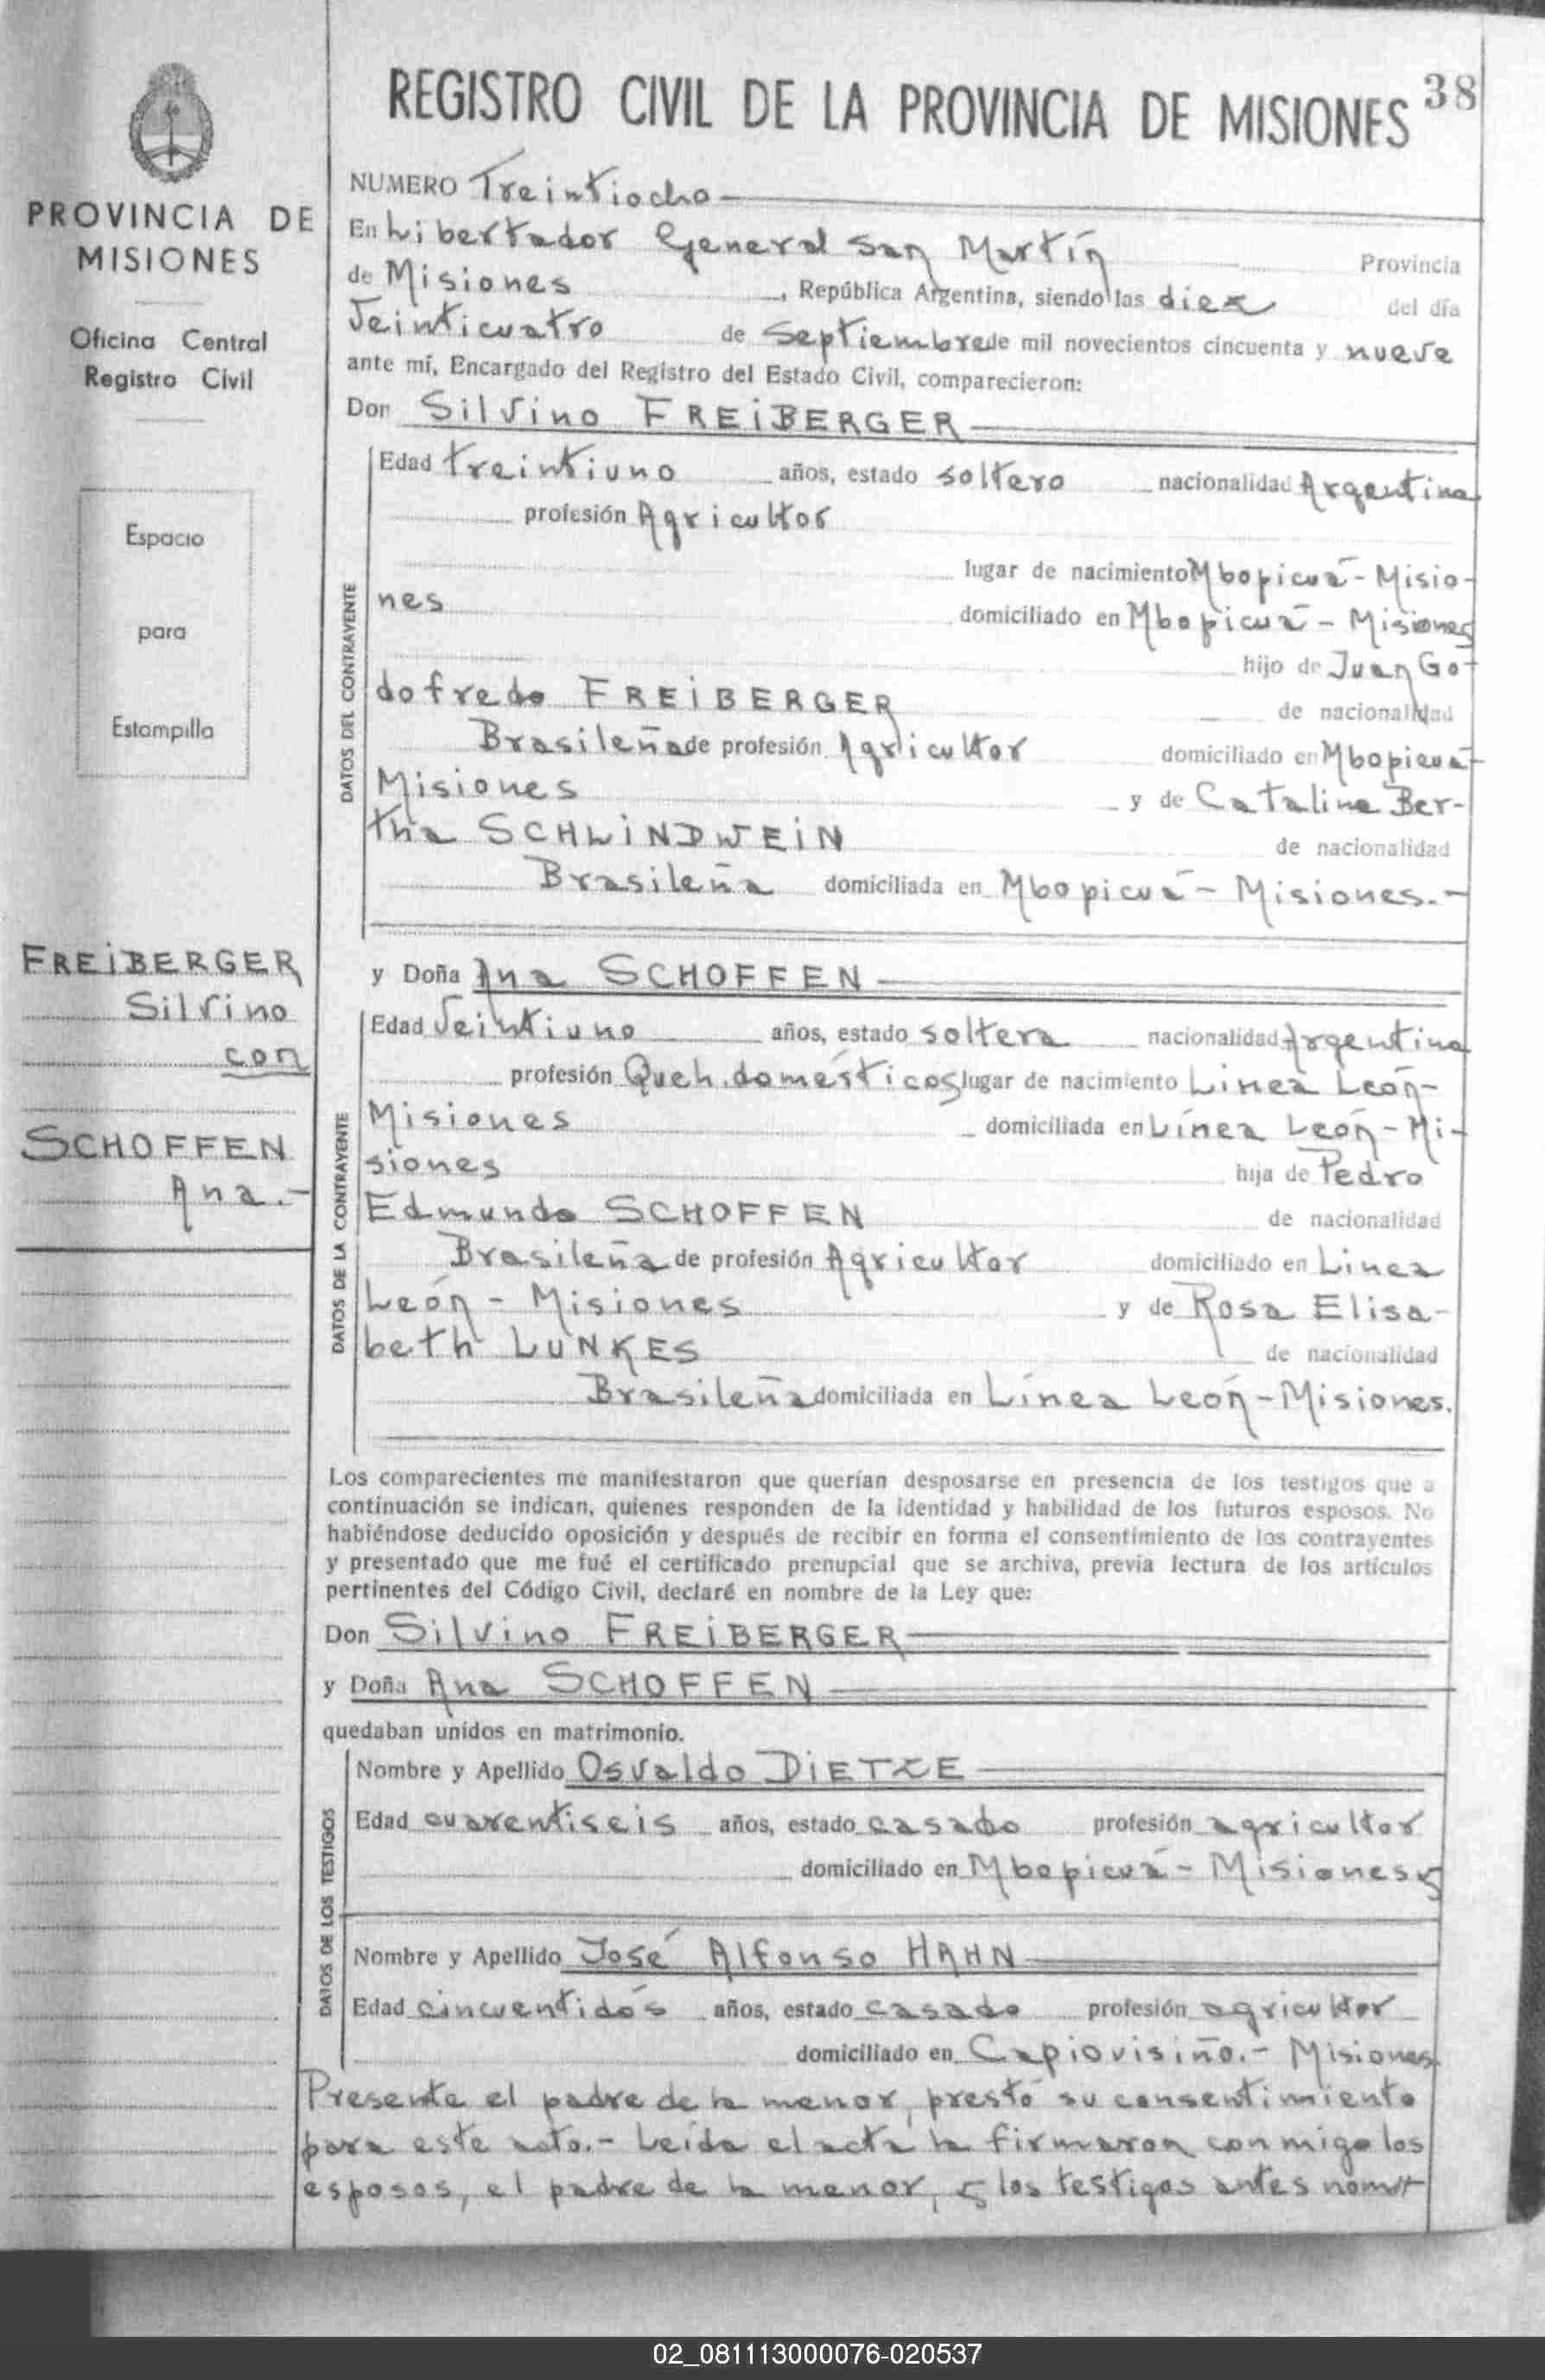 REGISTRO CIVIL DE LA PROVINCIA DE MISIONES 38
PROVINCIA DE
MISIONES
Oficina Central
Registro Civil
Espacio
para
Estampilla
FREiBERGER
Silvino
con
SCHOFFEN
Ana.-
NUMERO Treintiocho
En Libertador General San Martín Provincia
de Misiones , República Argentina, siendo las diez del día
Veinticuatro de Septiembre de mil novecientos cincuenta y nueve
ante mí, Encargado del Registro del Estado Civil, comparecieron:
Don Silvino FREiBERGER
DATOS DEL CONTRAYENTE
Edad treintiuno años, estado soltero nacionalidad Argentina
profesión Agricultor
lugar de nacimiento Mbopicuá - Misio-
nes domiciliado en Mbopicuá - Misiones
hijo de Juan Go-
dofredo FREiBERGER de nacionalidad
Brasileña de profesión Agricultor domiciliado en Mbopicuá-
Misiones y de Catalina Ber-
tha SCHLiNDWEiN de nacionalidad
Brasileña domiciliada en Mbopicuá - Misiones.-
y Doña Ana SCHOFFEN
DATOS DE LA CONTRAYENTE
Edad Veintiuno años, estado soltera nacionalidad Argentina
profesión Queh. domésticos lugar de nacimiento Linea León-
Misiones domiciliada en Línea León - Mi-
siones hija de Pedro
Edmundo SCHOFFEN de nacionalidad
Brasileña de profesión Agricultor domiciliado en Linea
León - Misiones y de Rosa Elisa-
beth LUNKES de nacionalidad
Brasileña domiciliada en Línea León - Misiones.
Los comparecientes me manifestaron que querían desposarse en presencia de los testigos que a
continuación se indican, quienes responden de la identidad y habilidad de los futuros esposos. No
habiéndose deducido oposición y después de recibir en forma el consentimiento de los contrayentes
y presentado que me fué el certificado prenupcial que se archiva, previa lectura de los artículos
pertinentes del Código Civil, declaré en nombre de la Ley que:
Don Silvino FREiBERGER
y Doña Ana SCHOFFEN
quedaban unidos en matrimonio.
DATOS DE LOS TESTIGOS
Nombre y Apellido Osvaldo DiETZE
Edad cuarentiseis años, estado casado profesión agricultor
domiciliado en Mbopicuá - Misiones y
Nombre y Apellido José Alfonso HAHN
Edad cincuentidós años, estado casado profesión agricultor
domiciliado en Capiovisiño.- Misiones.
Presente el padre de la menor, prestó su consentimiento
para este acto.- Leída el acta la firmaron conmigo los
esposos, el padre de la menor, y los testigos antes nom-
02_081113000076-020537